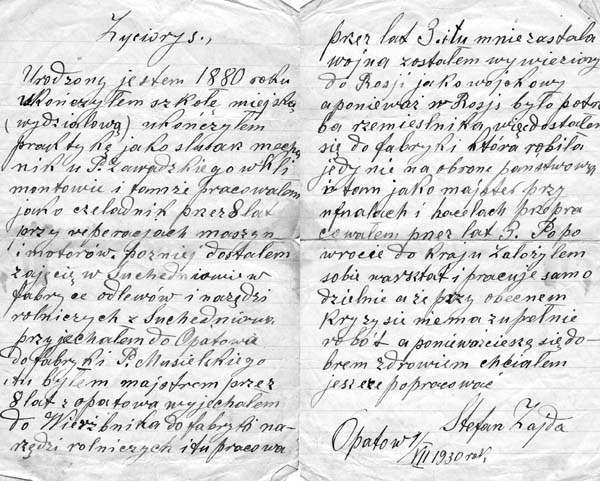 Życiorys.,
Urodzony jestem 1880 roku
ukończyłem szkołę miejską
(wydziałową) ukończyłem
praktykę jako ślusarz mecha
nik u P. Zawadzkiego w Kli
montowie i tamże pracowałem
jako czeladnik przez 8 lat
przy reperacjach maszyn
i motorów. poźniej dostałem
zajęcię w Suchedniowie w
fabryce odlewów i nażędzi
rolniczych z Suchedniowa
przyjechałem do Opatowa
do fabryki P. Musielskiego
i tu byłem majstrem przez
8 lat z opatowa wyjechałem
do Wierzbnika do fabryki na-
rzędzi rolniczych i tu pracowa
przez lat 3. i tu mnie zastała
wojna zostałem wywieziony
do Rosji jako wojskowy
a ponieważ w Rosji było potrze
ba rzemieślnika, więc dostałem
się do fabryki która robiła
jedynie na obronę państwową
i tam jako majster przy
ufnalach i hacelach przepra
cowałem przez lat 5. Po po
wrocie do kraju założyłem
sobie warsztat i pracuje samo
dzielnie a że przy obecnem
kryzysie niema zupełnie
robót a ponieważ cieszą się do-
brem zdrowiem chciałem
jeszcze popracować
Stefan Zajda
Opatow 1/VII 1930 rok.